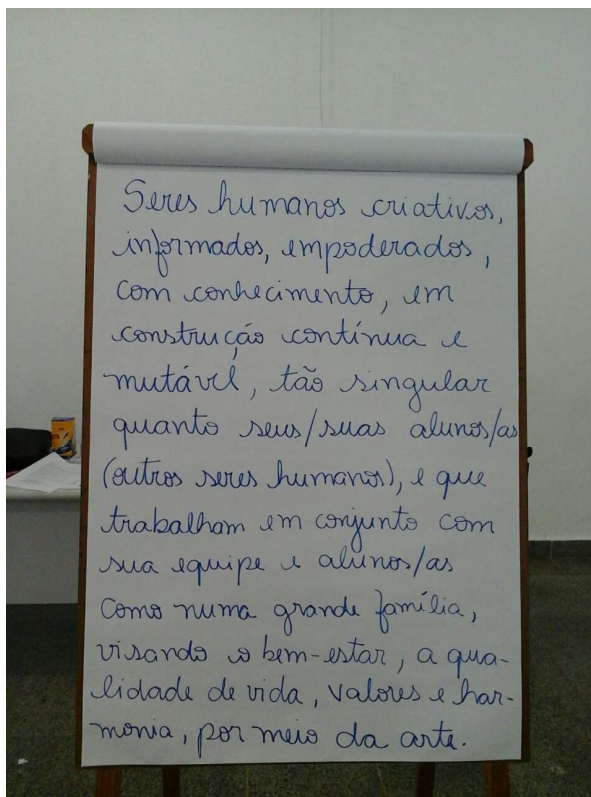 Seres humanos criativos,
informados, empoderados,
com conhecimento, em
construção contínua e
mutável, tão singular
quanto seus/suas alunos/as
(outros seres humanos), e que
trabalham em conjunto com
sua equipe e alunos/as
como numa grande família,
visando o bem-estar, a qua-
lidade de vida, valores e har-
monia, por meio da arte.